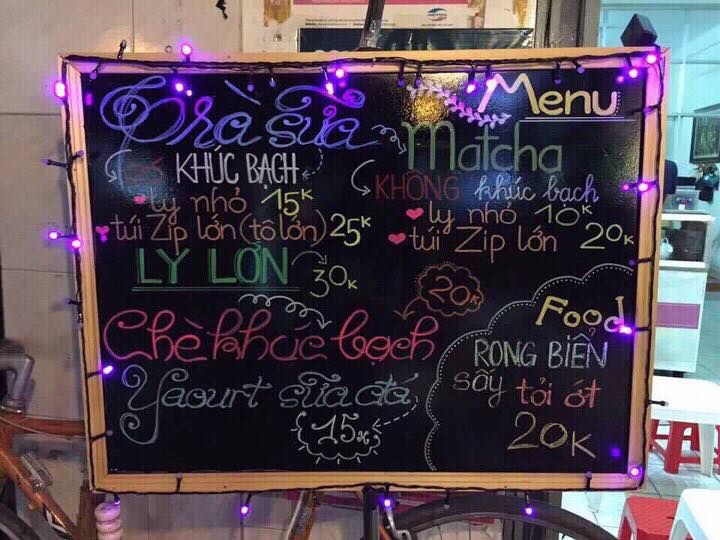 Menu
Trà sữa
Matcha
Có KHÚC BẠCH
ly nhỏ 15K
túi Zip lớn (tô lớn) 25K
LY LỚN 30K
KHÔNG khúc bạch
ly nhỏ 10K
túi Zip lớn 20K
Chè khúc bạch 20K
Yaourt sữa đá 15K
Food
RONG BIỂN
sấy tỏi ớt
20K